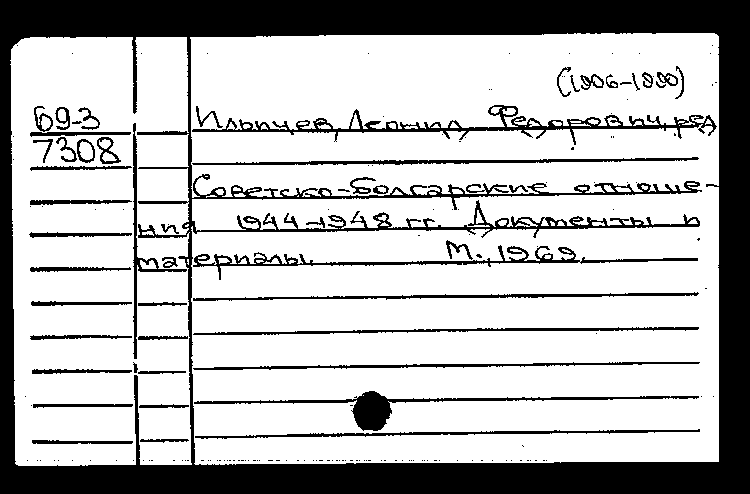 (1906-1990)
69-3 Ильичев, Леонид Федорович, ред
7308
Советско-болгарские отноше-
ния 1944-1948 гг. Документы и
материалы. М., 1969.